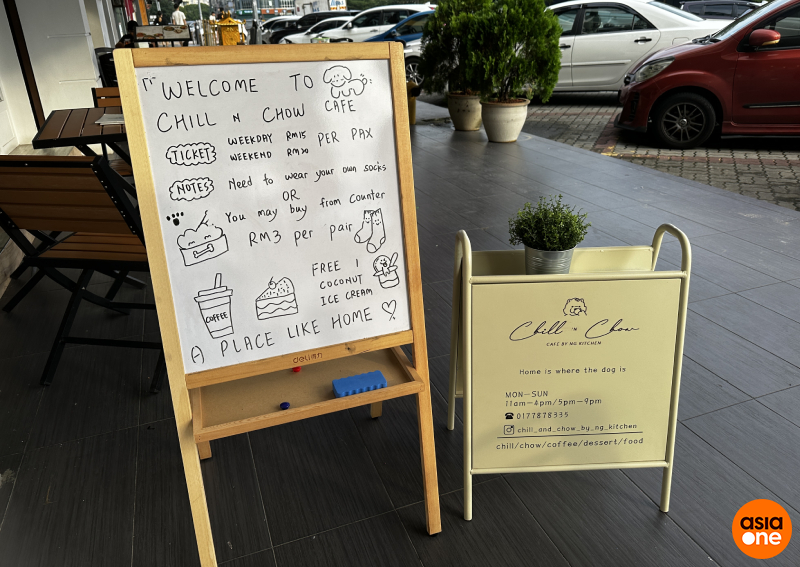 WELCOME TO
CHILL N CHOW CAFE
TICKET WEEKDAY RM15 PER PAX
WEEKEND RM20
NOTES Need to wear your own socks
OR
You may buy from counter
RM3 per pair
FREE 1
COCONUT
ICE CREAM
COFFEE
A PLACE LIKE HOME
delign
Chill 'N' Chow
CAFE BY NG KITCHEN
Home is where the dog is
MON-SUN
11am-4pm/5pm-9pm
0177878335
chill_and_chow_by_ng_kitchen
chill/chow/coffee/dessert/food
asia
one